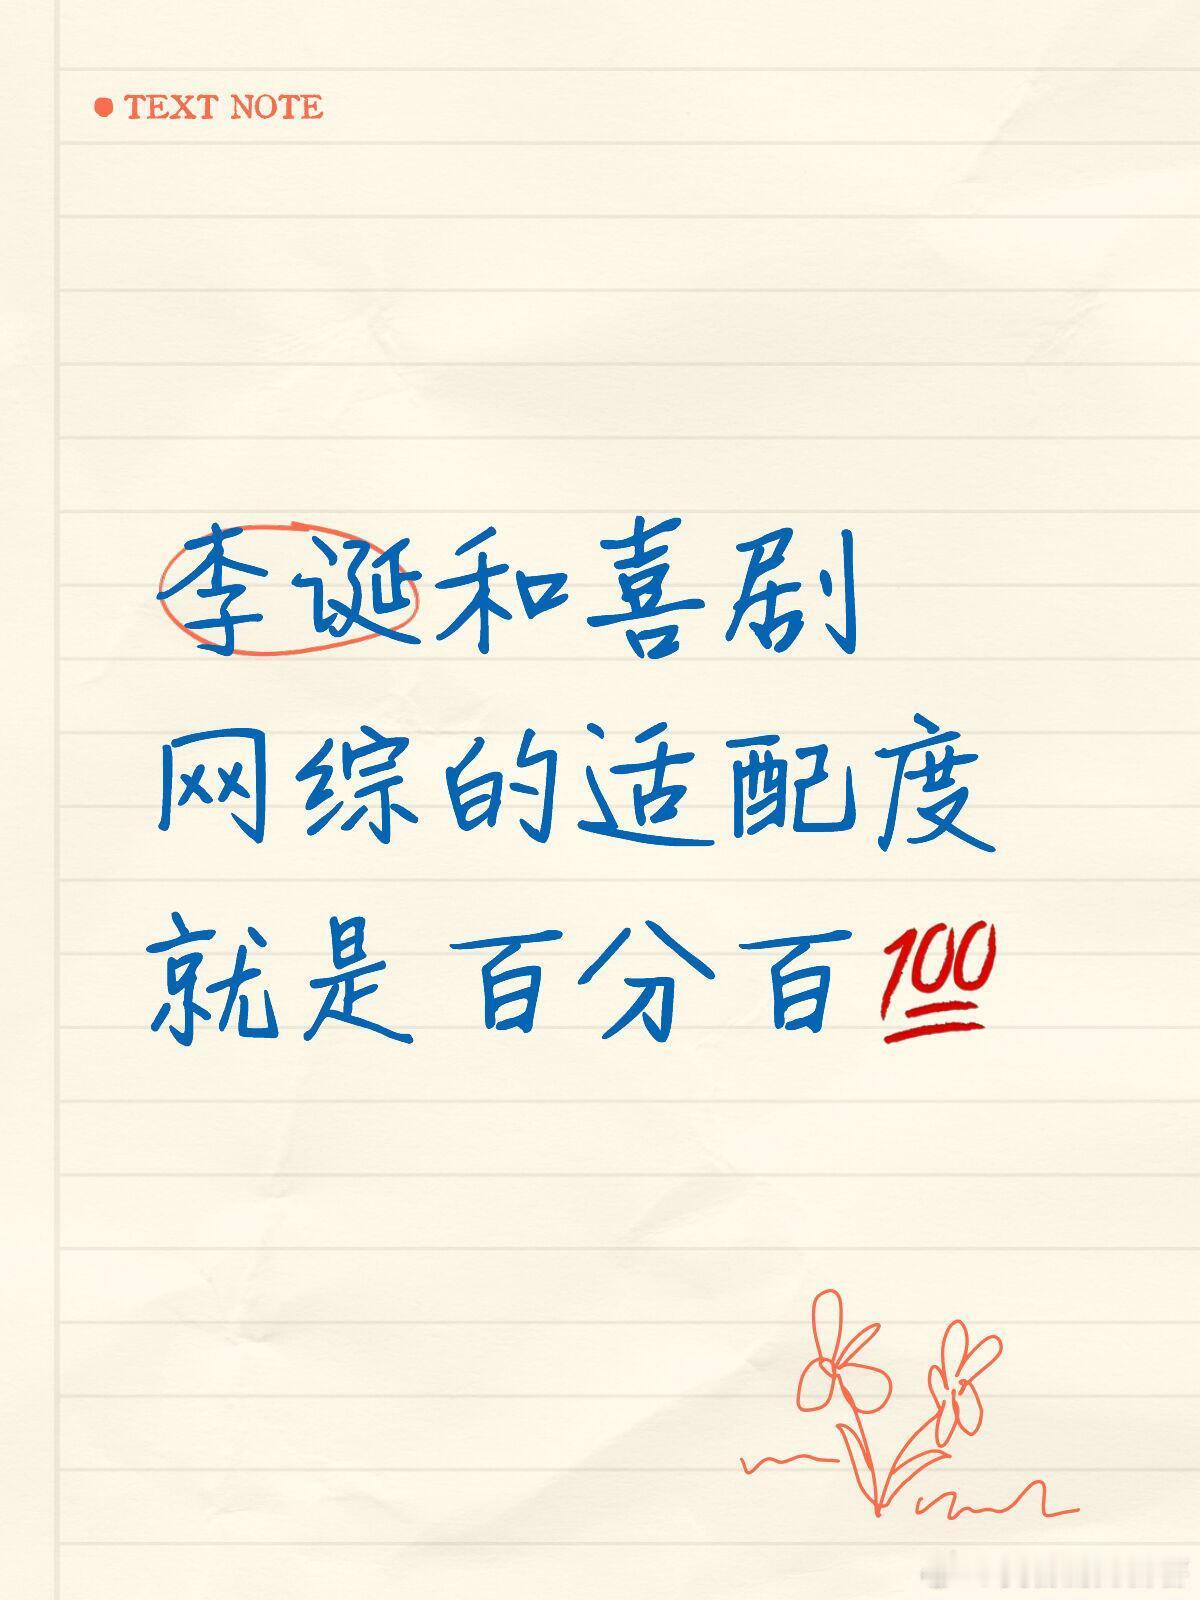 TEXT NOTE
李诞和喜剧
网综的适配度
就是百分百💯